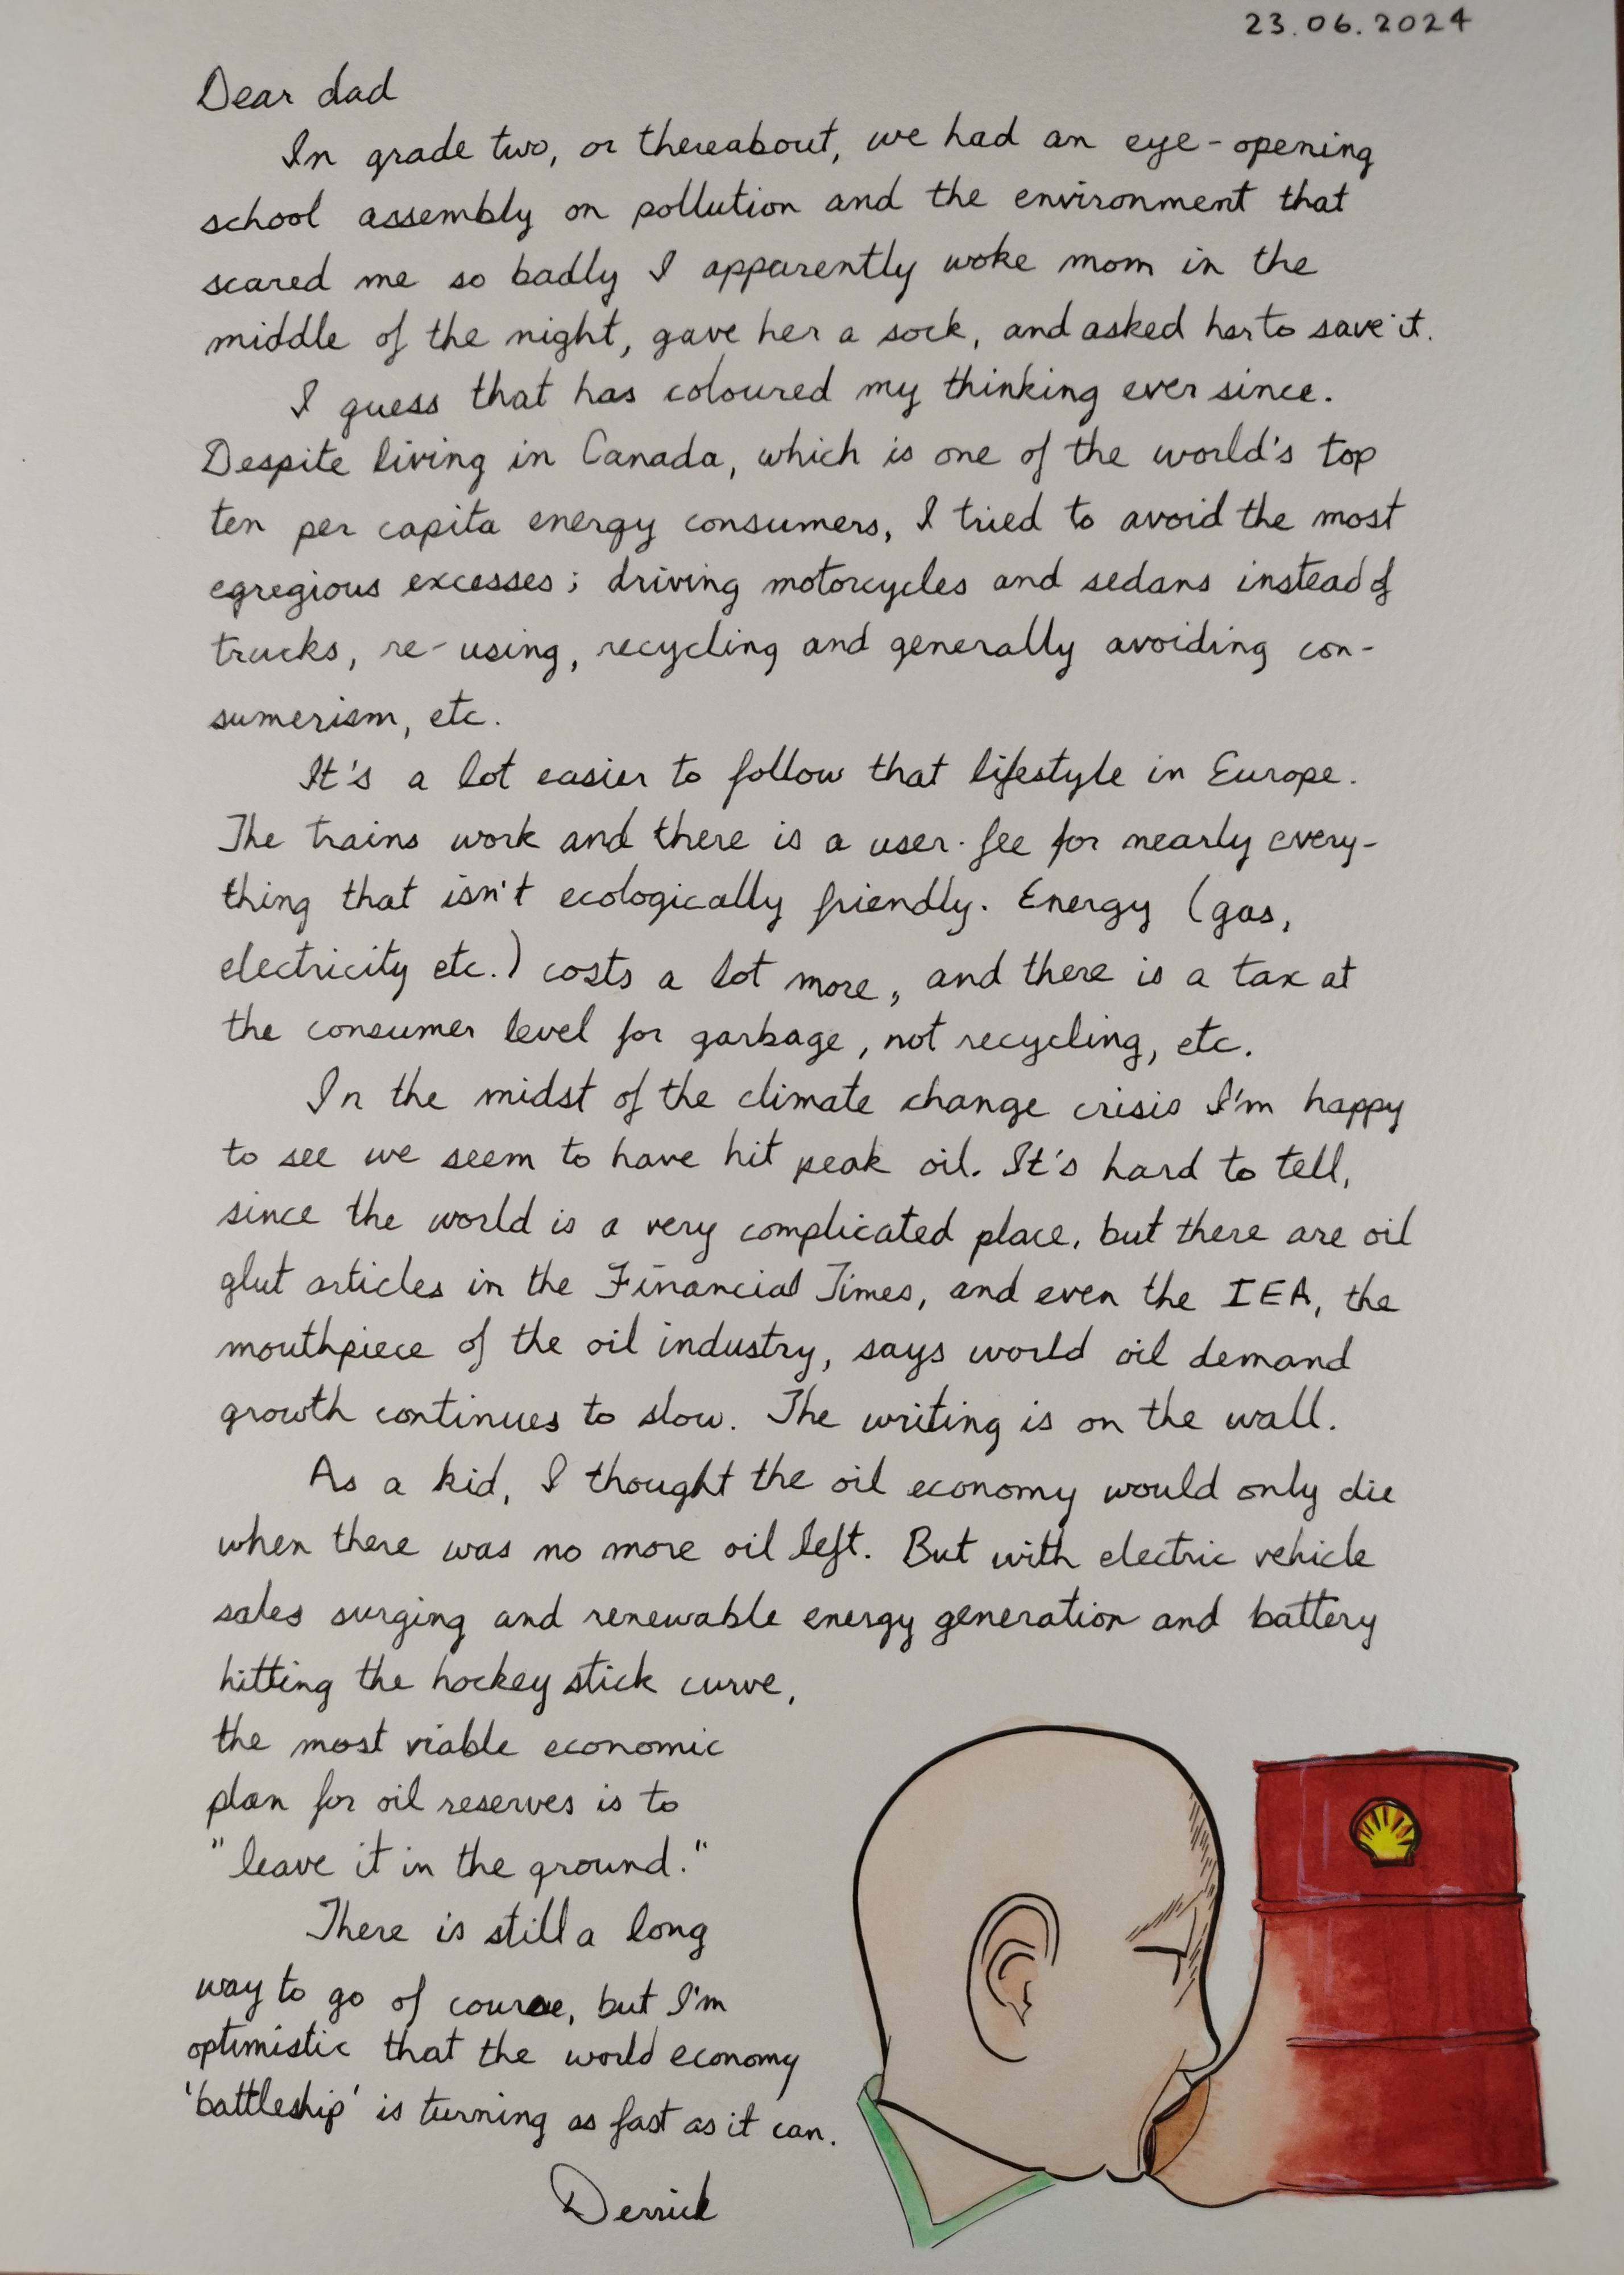 23.06.2024
Dear dad
In grade two, or thereabout, we had an eye-opening
school assembly on pollution and the environment that
scared me so badly I apparently woke mom in the
middle of the night, gave her a sock, and asked her to save it.
I guess that has coloured my thinking ever since.
Despite living in Canada, which is one of the world's top
ten per capita energy consumers, I tried to avoid the most
egregious excesses; driving motorcycles and sedans instead of
trucks, re-using, recycling and generally avoiding con-
sumerism, etc.
It's a lot easier to follow that lifestyle in Europe.
The trains work and there is a user-fee for nearly every-
thing that isn't ecologically friendly. Energy (gas,
electricity etc.) costs a lot more, and there is a tax at
the consumer level for garbage, not recycling, etc.
In the midst of the climate change crisis I'm happy
to see we seem to have hit peak oil. It's hard to tell,
since the world is a very complicated place, but there are oil
glut articles in the Financial Times, and even the IEA, the
mouthpiece of the oil industry, says world oil demand
growth continues to slow. The writing is on the wall.
As a kid, I thought the oil economy would only die
when there was no more oil left. But with electric vehicle
sales surging and renewable energy generation and battery
hitting the hockey stick curve,
the most viable economic
plan for oil reserves is to
"leave it in the ground."
There is still a long
way to go of course, but I'm
optimistic that the world economy
'battleship' is turning as fast as it can.
Derrick